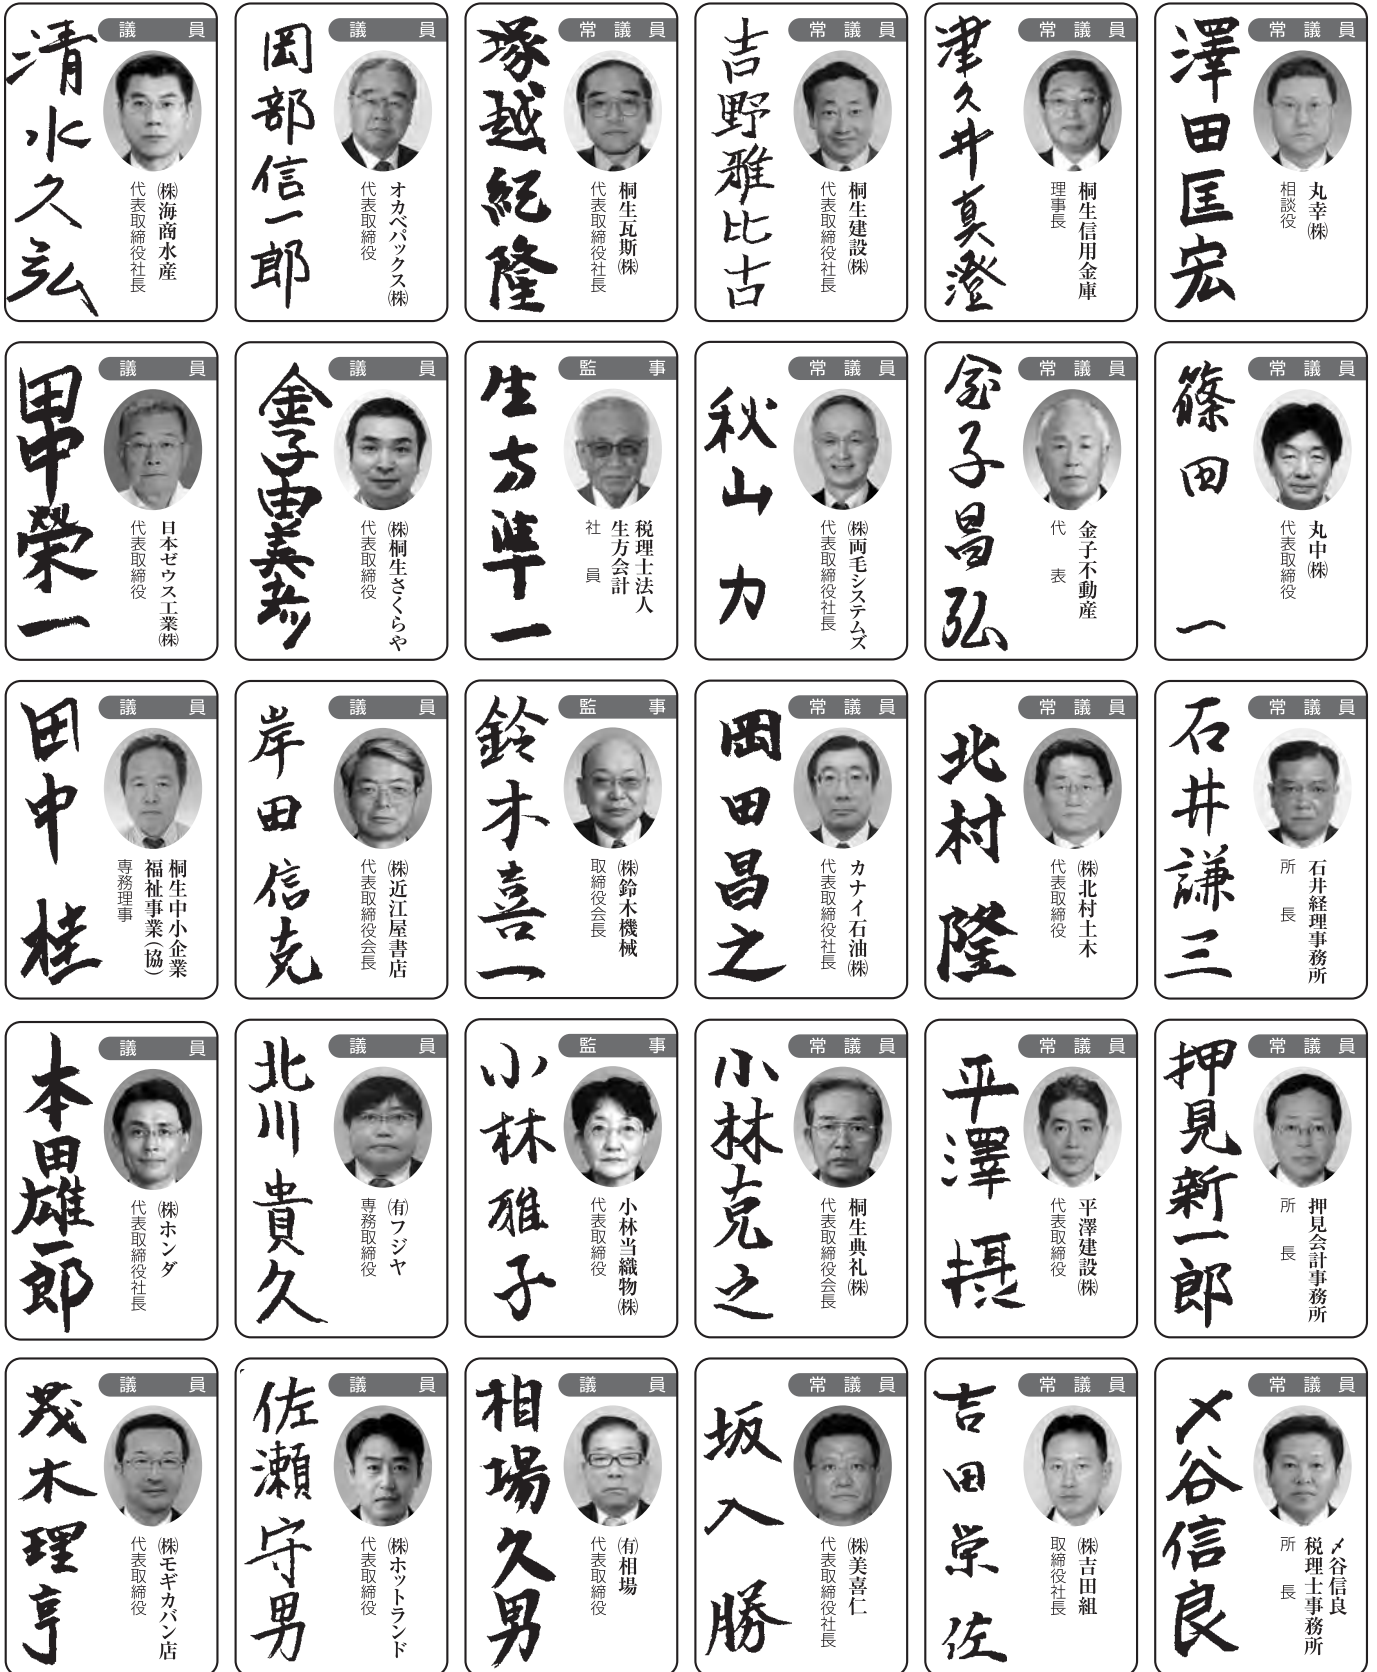 常議員
澤田匡宏
丸幸㈱
相談役
常議員
津久井真澄
桐生信用金庫
理事長
常議員
吉野雅比古
桐生建設㈱
代表取締役社長
常議員
塚越紀隆
桐生瓦斯㈱
代表取締役社長
議員
岡部信一郎
オカベパックス㈱
代表取締役
議員
清水久弘
㈱海商水産
代表取締役社長
常議員
篠田一
丸中㈱
代表取締役
常議員
金子昌弘
金子不動産
代表
常議員
秋山力
㈱両毛システムズ
代表取締役社長
監事
生方準一
税理士法人
生方会計
社員
議員
金子由美彦
㈱桐生さくらや
代表取締役
議員
田中榮一
日本ゼウス工業㈱
代表取締役
常議員
石井謙三
石井経理事務所
所長
常議員
北村隆
㈱北村土木
代表取締役
常議員
岡田昌之
カナイ石油㈱
代表取締役社長
監事
鈴木喜一
㈱鈴木機械
取締役会長
議員
岸田信克
㈱近江屋書店
代表取締役会長
議員
田中桂
桐生中小企業
福祉事業(協)
専務理事
常議員
押見新一郎
押見会計事務所
所長
常議員
平澤摂
平澤建設㈱
代表取締役
常議員
小林克之
桐生典礼㈱
代表取締役会長
監事
小林雅子
小林当織物㈱
代表取締役
議員
北川貴久
㈲フジヤ
専務取締役
議員
本田雄一郎
㈱ホンダ
代表取締役社長
常議員
〆谷信良
〆谷信良
税理士事務所
所長
常議員
吉田栄佐
㈱吉田組
取締役社長
常議員
坂入勝
㈱美喜仁
代表取締役社長
議員
相場久男
㈲相場
代表取締役
議員
佐瀬守男
㈱ホットランド
代表取締役
議員
茂木理亨
㈱モギカバン店
代表取締役